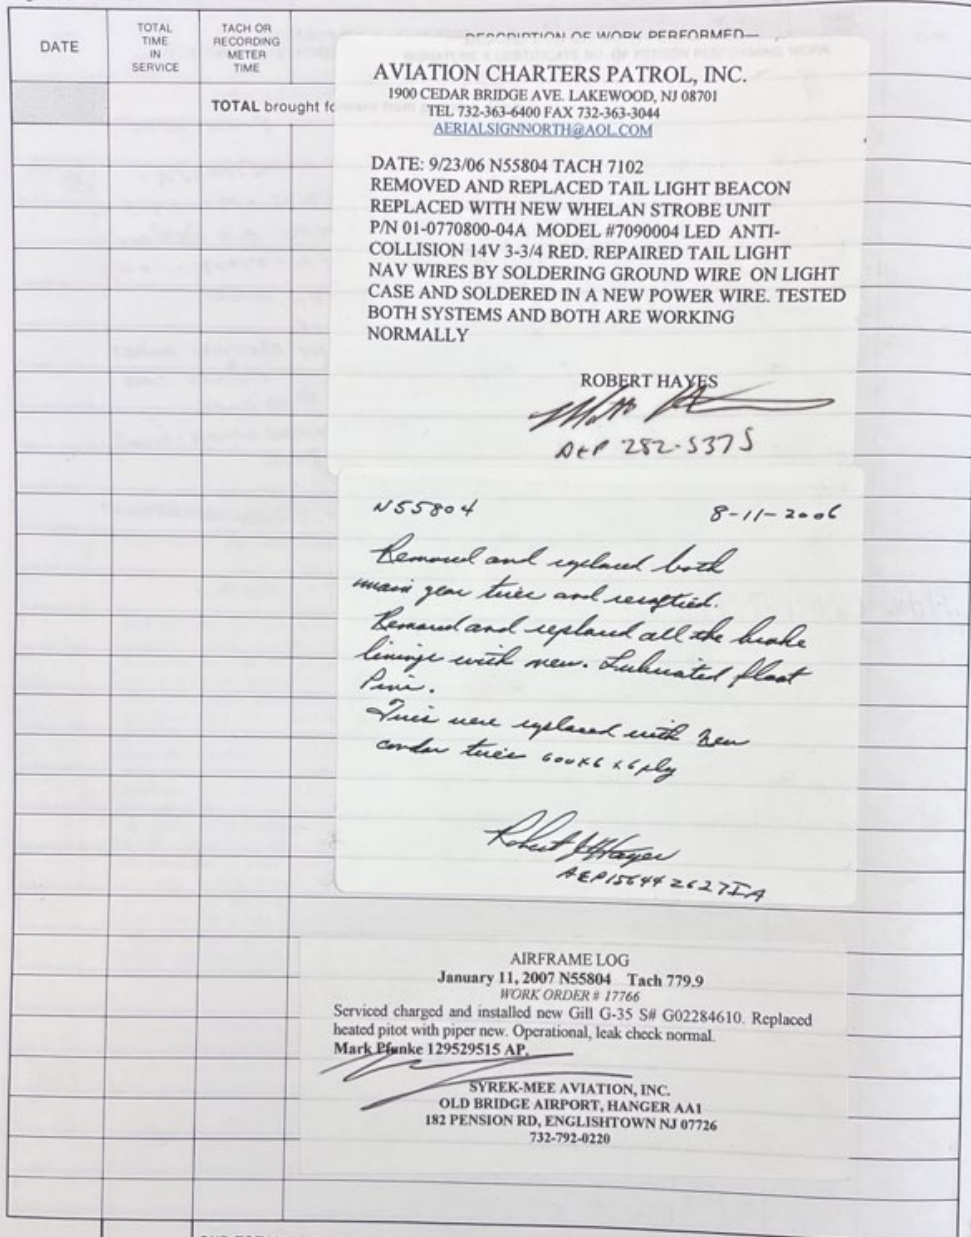 DATE
TOTAL
TIME
IN
SERVICE
TACH OR
RECORDING
METER
TIME
DESCRIPTION OF WORK PERFORMED—
TOTAL brought fo
AVIATION CHARTERS PATROL, INC.
1900 CEDAR BRIDGE AVE. LAKEWOOD, NJ 08701
TEL 732-363-6400 FAX 732-363-3044
AERIALSIGNNORTH@AOL.COM
DATE: 9/23/06 N55804 TACH 7102
REMOVED AND REPLACED TAIL LIGHT BEACON
REPLACED WITH NEW WHELAN STROBE UNIT
P/N 01-0770800-04A MODEL #7090004 LED ANTI-
COLLISION 14V 3-3/4 RED. REPAIRED TAIL LIGHT
NAV WIRES BY SOLDERING GROUND WIRE ON LIGHT
CASE AND SOLDERED IN A NEW POWER WIRE. TESTED
BOTH SYSTEMS AND BOTH ARE WORKING
NORMALLY
ROBERT HAYES
A&P 282-5375
N55804 8-11-2006
Removed and replaced both
main gear tires and
Removed and replaced all the brake
linings with new. Lubricated float
Pins.
Tires were replaced with New
condor tires 600x6 x6ply
Robert Hayes
A&P 156442627IA
AIRFRAME LOG
January 11, 2007 N55804 Tach 779.9
WORK ORDER # 17766
Serviced charged and installed new Gill G-35 S# G02284610. Replaced
heated pitot with piper new. Operational, leak check normal.
Mark Pfunke 129529515 AP.
SYREK-MEE AVIATION, INC.
OLD BRIDGE AIRPORT, HANGER AA1
182 PENSION RD, ENGLISHTOWN NJ 07726
732-792-0220